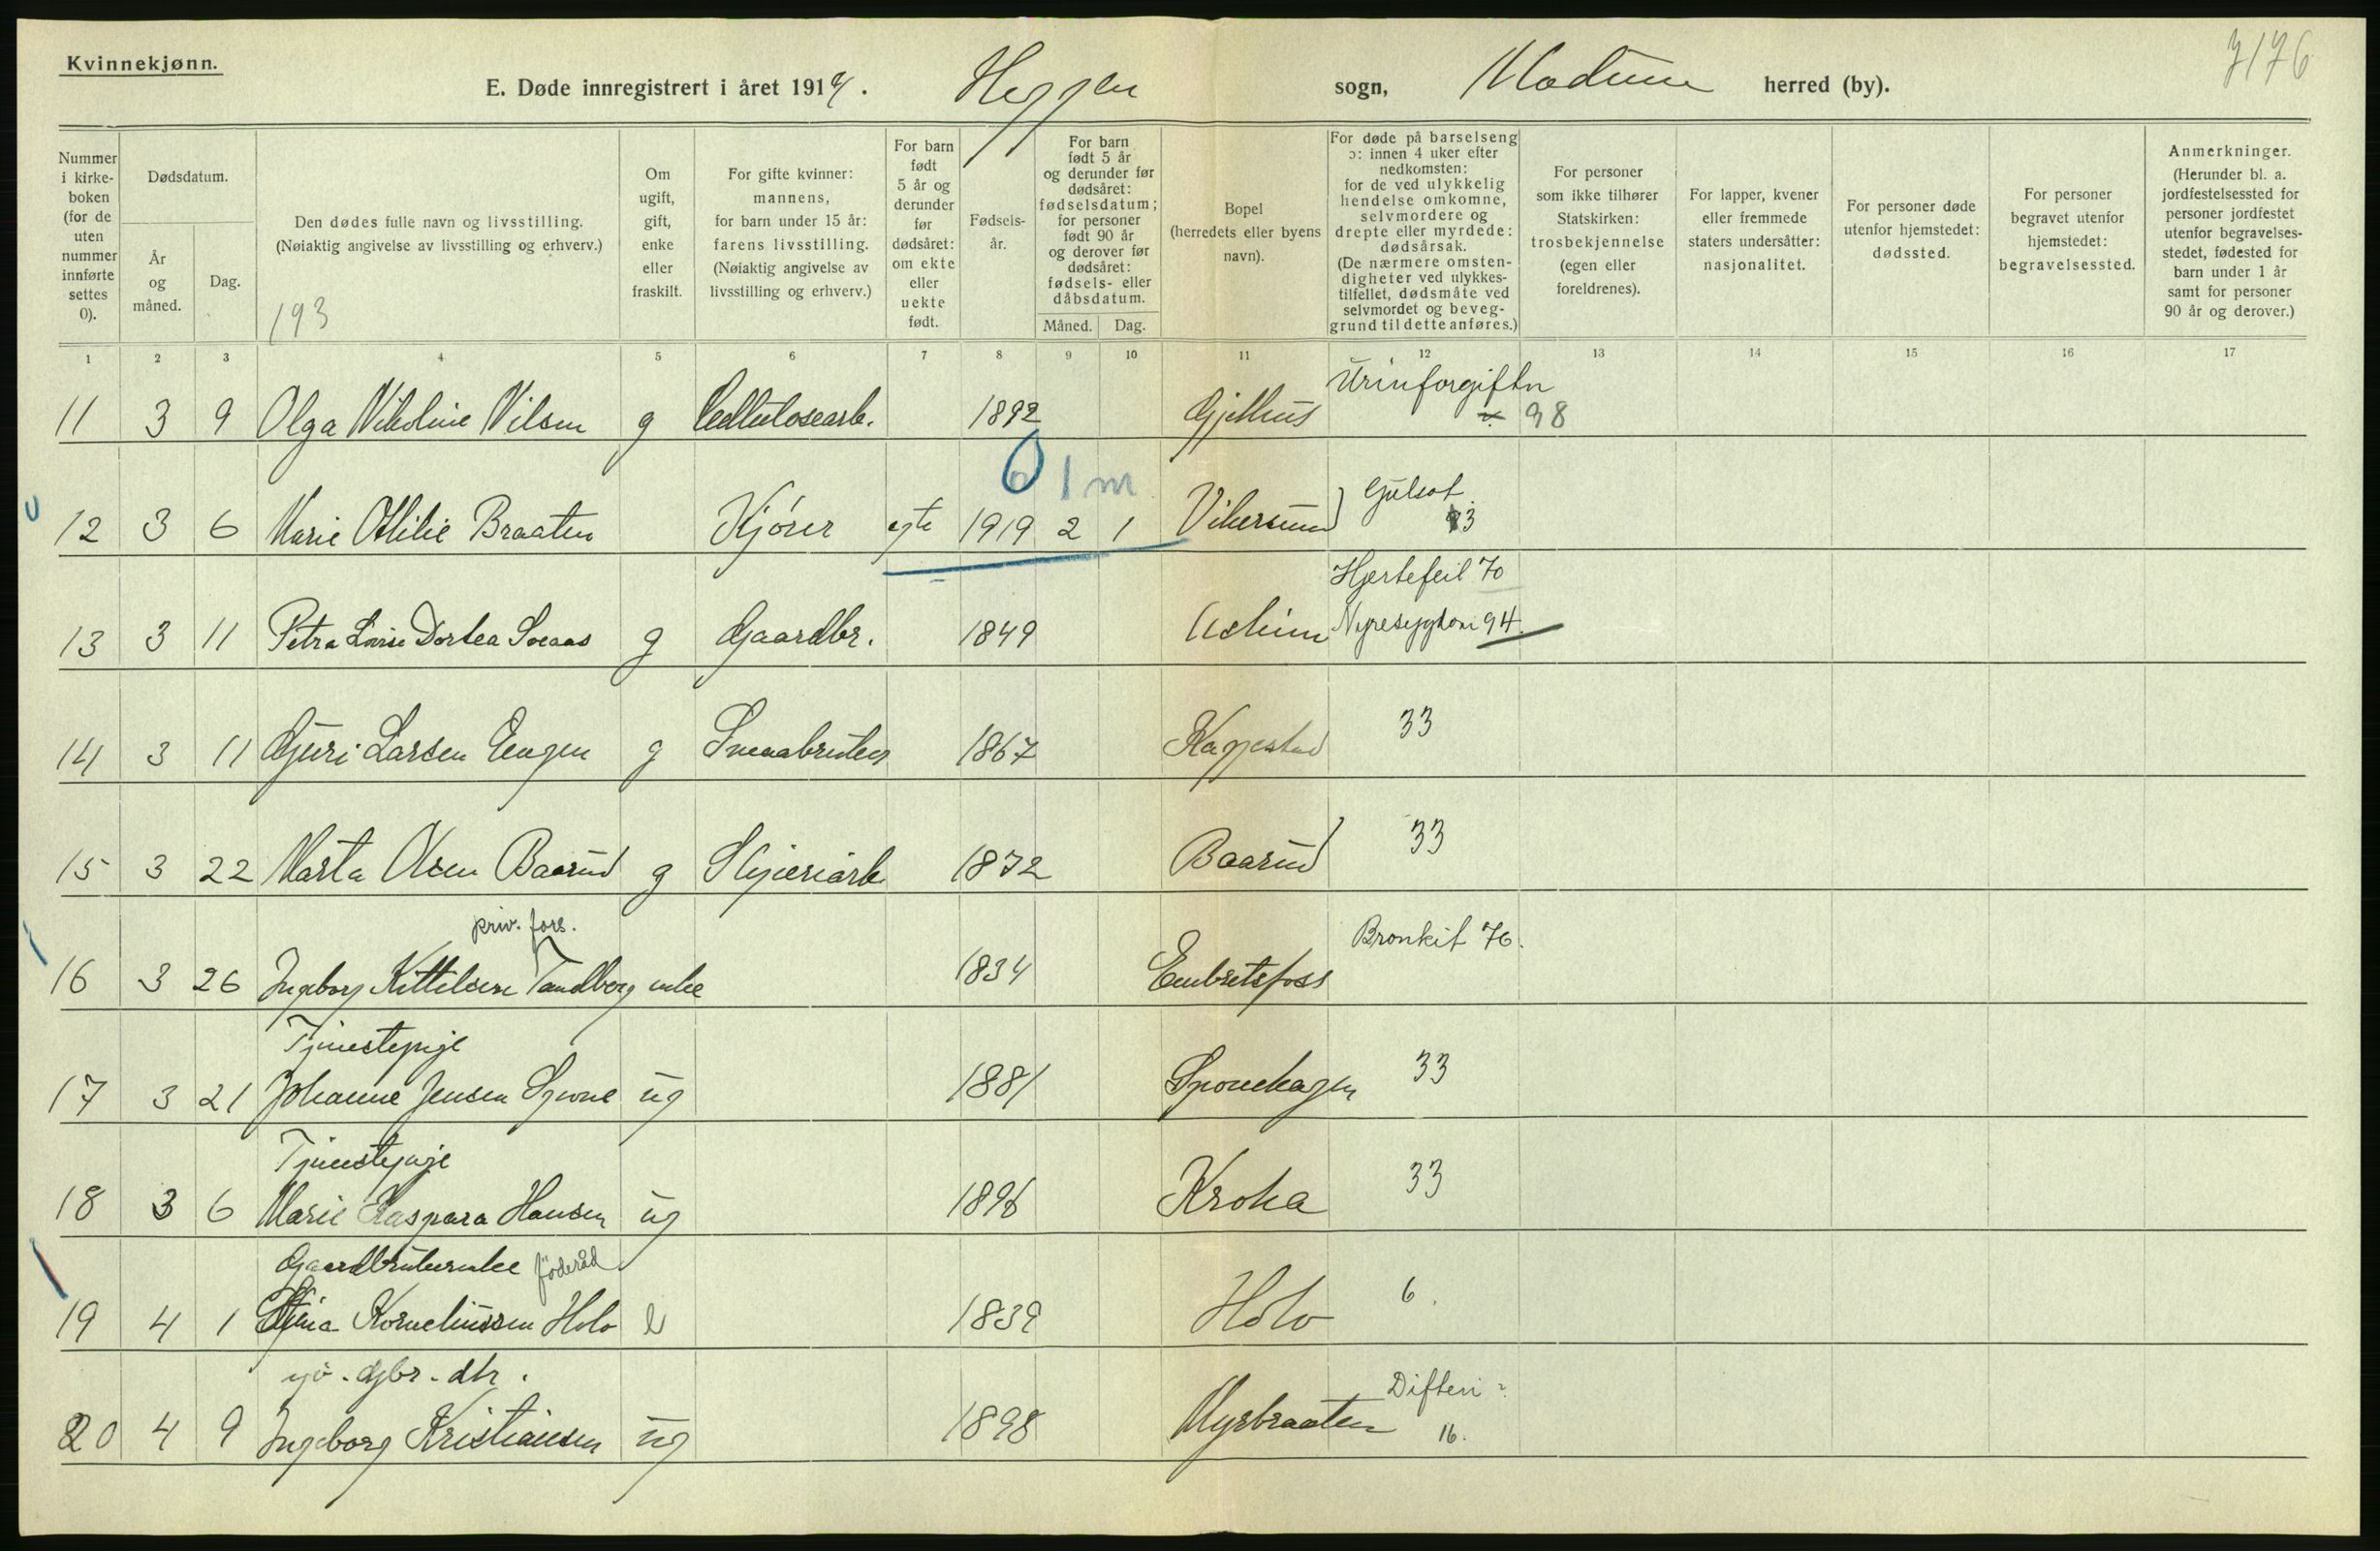 Kvinnekjønn.
7176
E. Døde innregistrert i året 1919. Heggen sogn, Modum herred (by).
Nummer i kirke-boken (for de uten nummer innførte settes 0).
Dødsdatum.
År og måned.
Dag.
Den dødes fulle navn og livsstilling. (Nøiaktig angivelse av livsstilling og erhverv.)
193
Om ugift, gift, enke eller fraskilt.
For gifte kvinner: mannens, for barn under 15 år: farens livsstilling. (Nøiaktig angivelse av livsstilling og erhverv.)
For barn født 5 år og derunder før dødsåret: om ekte eller uekte født.
Fødsels-år.
For barn født 5 år og derunder før dødsåret: fødselsdatum; for personer født 90 år og derover før dødsåret: fødsels- eller dåbsdatum.
Måned. Dag.
Bopel (herredets eller byens navn).
For døde på barselseng ɔ: innen 4 uker efter nedkomsten: for de ved ulykkelig hendelse omkomne, selvmordere og drepte eller myrdede: dødsårsak. (De nærmere omsten-digheter ved ulykkes-tilfellet, dødsmåte ved selvmordet og beveg-grund til dette anføres.)
For personer som ikke tilhører Statskirken: trosbekjennelse (egen eller foreldrenes).
For lapper, kvener eller fremmede staters undersåtter: nasjonalitet.
For personer døde utenfor hjemstedet: dødssted.
For personer begravet utenfor hjemstedet: begravelsessted.
Anmerkninger. (Herunder bl. a. jordfestelsessted for personer jordfestet utenfor begravelses-stedet, fødested for barn under 1 år samt for personer 90 år og derover.)
1 2 3 4 5 6 7 8 9 10 11 12 13 14 15 16 17
Urinforgiftn
11 3 9 Olga Nikoline Nilsen g Cellulosearb. 1892 Gjethus 98
0 1 m
Gulsot
12 3 6 Marie Otilie Braaten Kjører egte 1919 2 1 Vikersund 93
Hjertefeil 70
13 3 11 Petra Lovise Dortea Soeaas g Gaardbr. 1849 Nyresygdom 94.
14 3 11 Guri Larsen Engen g Smaabruker 1867 Kaggestad 33
15 3 22 Marta Olsen Baarud g Sliperiarb 1872 Baarud 33
priv. fors.
Bronkit 76.
16 3 26 Ingeborg Kittelsen Tandberg enke 1834 Embretsfoss
Tjenestepige
17 3 21 Johanne Jensen Spone ug 1881 Sponehagen 33
Tjenestepige
18 3 6 Marie Kaspara Hansen ug 1896 Kroka 33
Gaardbrukerenke föderåd
19 4 1 Korneliussen Holo e 1839 Holo 6.
gbr. dtr.
Difteri ?
20 4 9 Ingeborg Kristiansen ug 1898 Myrbraaten 16.